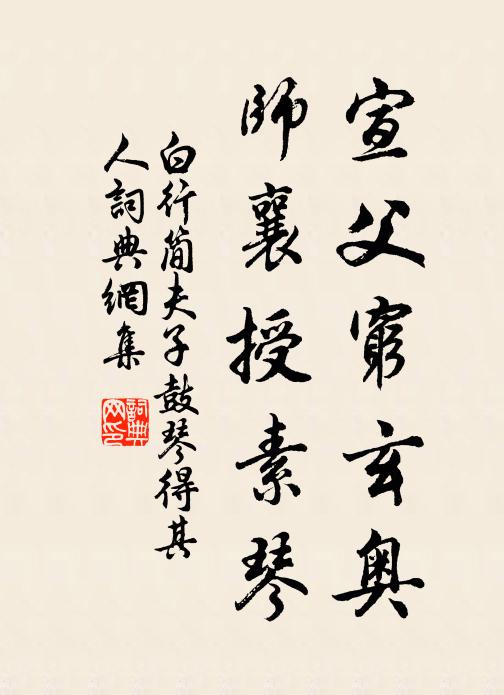 宣父窮玄奥
師襄授素琴
白行简夫子鼓琴得其
人詞典網集
詞典
网印